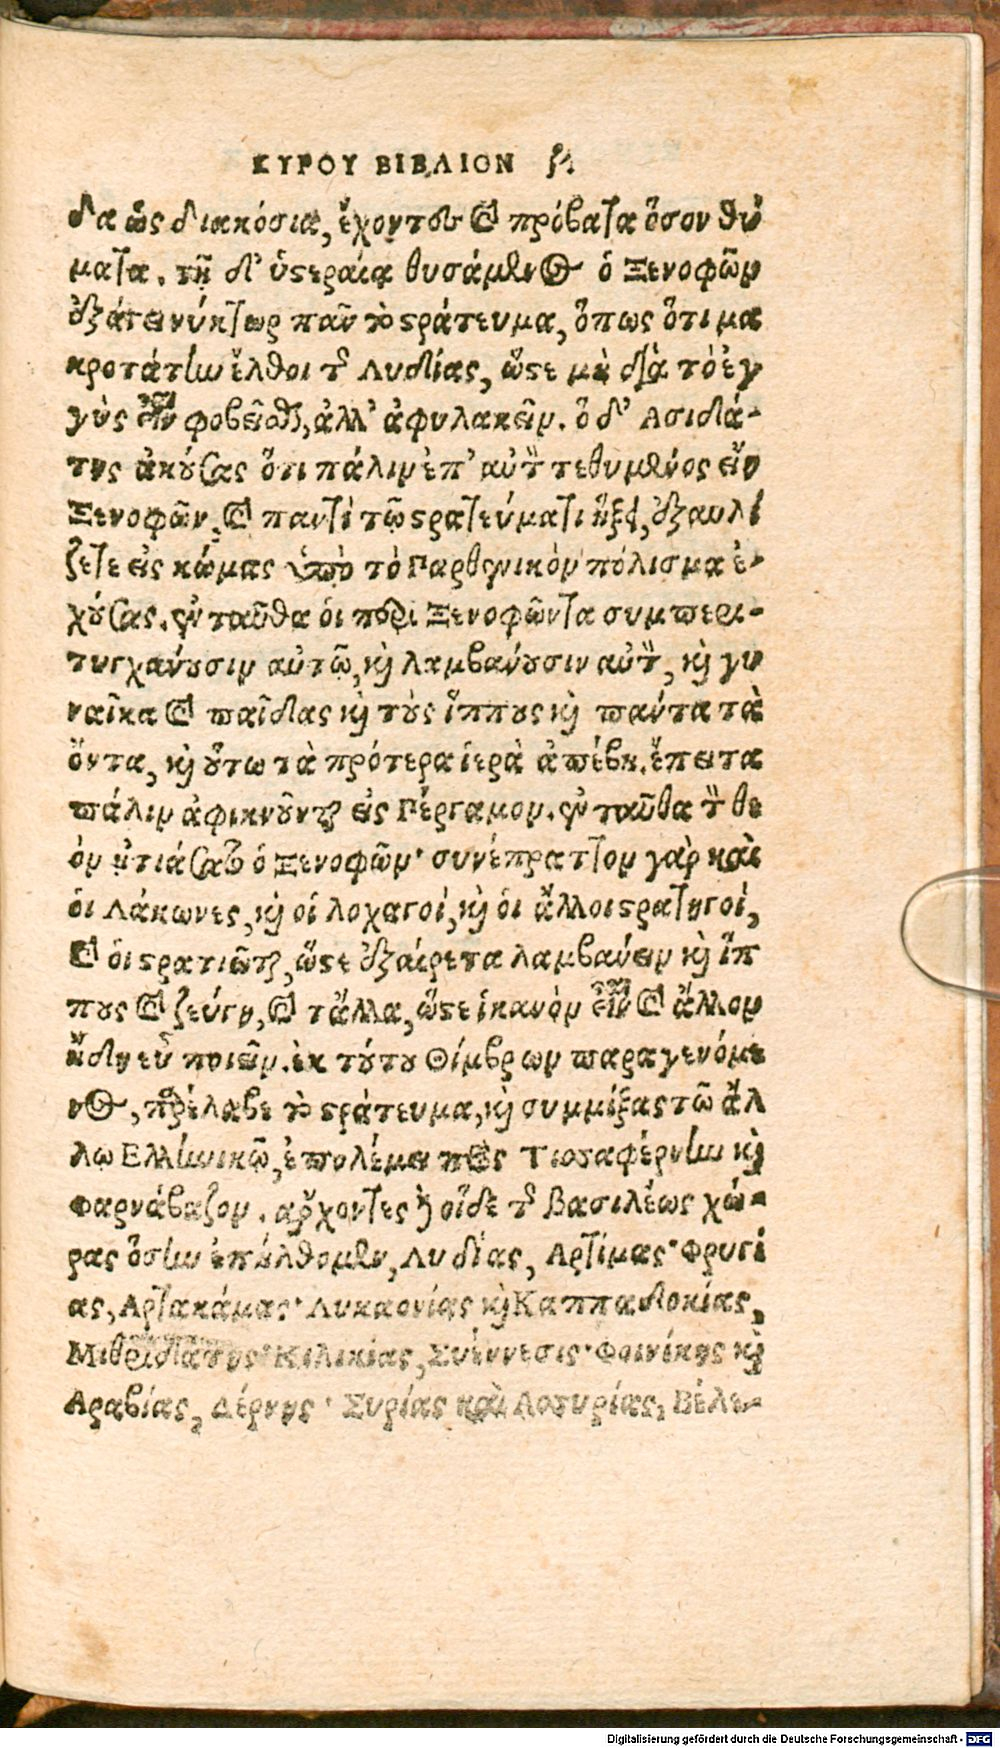 ΚΥΡΟΥ ΒΙΒΛΙΟΝ ζ.
δα ὡς διακόσια, ἔχοντες καὶ πρόβατα ὅσον θύ
ματα. τῇ δ' ὑστεραίᾳ θυσάμενος ὁ Ξενοφῶν
ἐξάγει νύκτωρ πᾶν τὸ στράτευμα, ὅπως ὅτι μα
κροτάτην ἔλθοι τῆς Λυδίας, ὥστε μὴ διὰ τὸ ἐγ
γὺς εἶναι φοβεῖσθαι, ἀλλ' ἀφυλακεῖν. ὁ δ' Ασιδά-
της ἀκούσας ὅτι πάλιν ἐπ' αὐτὸν τεθυμένος εἴη
Ξενοφῶν, καὶ παντὶ τῷ στρατεύματι ἥξει, ἐξαυλί
ζετε εἰς κώμας ὑπὸ τὸ Παρθενικὸν πόλισμα ἐ-
χούσας. ἐνταῦθα οἱ περὶ Ξενοφῶντα συμπερι-
τυγχάνουσιν αὐτῷ, καὶ λαμβάνουσιν αὐτὸν, καὶ γυ
ναῖκα καὶ παῖδας καὶ τοὺς ἵππους καὶ πάντα τὰ
ὄντα, καὶ οὕτω τὰ πρότερα ἱερὰ ἀπέβη. ἔπειτα
πάλιν ἀφικνοῦνται εἰς Πέργαμον. ἐνταῦθα τὸν θε
ὸν ᾐτιάσατο ὁ Ξενοφῶν· συνέπραττον γὰρ καὶ
οἱ Λάκωνες, καὶ οἱ λοχαγοί, καὶ οἱ ἄλλοι στρατηγοί,
καὶ οἱ στρατιῶται, ὥστε ἐξαίρετα λαμβάνειν καὶ ἵπ
πους καὶ ζεύγη, καὶ τἄλλα, ὥστε ἱκανὸν εἶναι καὶ ἄλλον
ἤδη εὖ ποιεῖν. ἐκ τούτου Θίμβρων παραγενόμε
νος, παρέλαβε τὸ στράτευμα, καὶ συμμίξας τῷ ἄλ
λῳ Ελληνικῷ, ἐπολέμει πρὸς Τισσαφέρνην καὶ
Φαρνάβαζον. ἄρχοντες δὲ οἵδε τῆς βασιλέως χώ-
ρας ὅσην ἐπήλθομεν, Λυδίας, Αρτίμας· Φρυγί
ας, Αρτακάμας· Λυκαονίας καὶ Καππαδοκίας,
Μιθριδάτης· Κιλικίας, Συέννεσις· Φοινίκης καὶ
Αραβίας, Δέρνης· Συρίας καὶ Ασσυρίας, Βέλε-
Digitalisierung gefördert durch die Deutsche Forschungsgemeinschaft - DFG